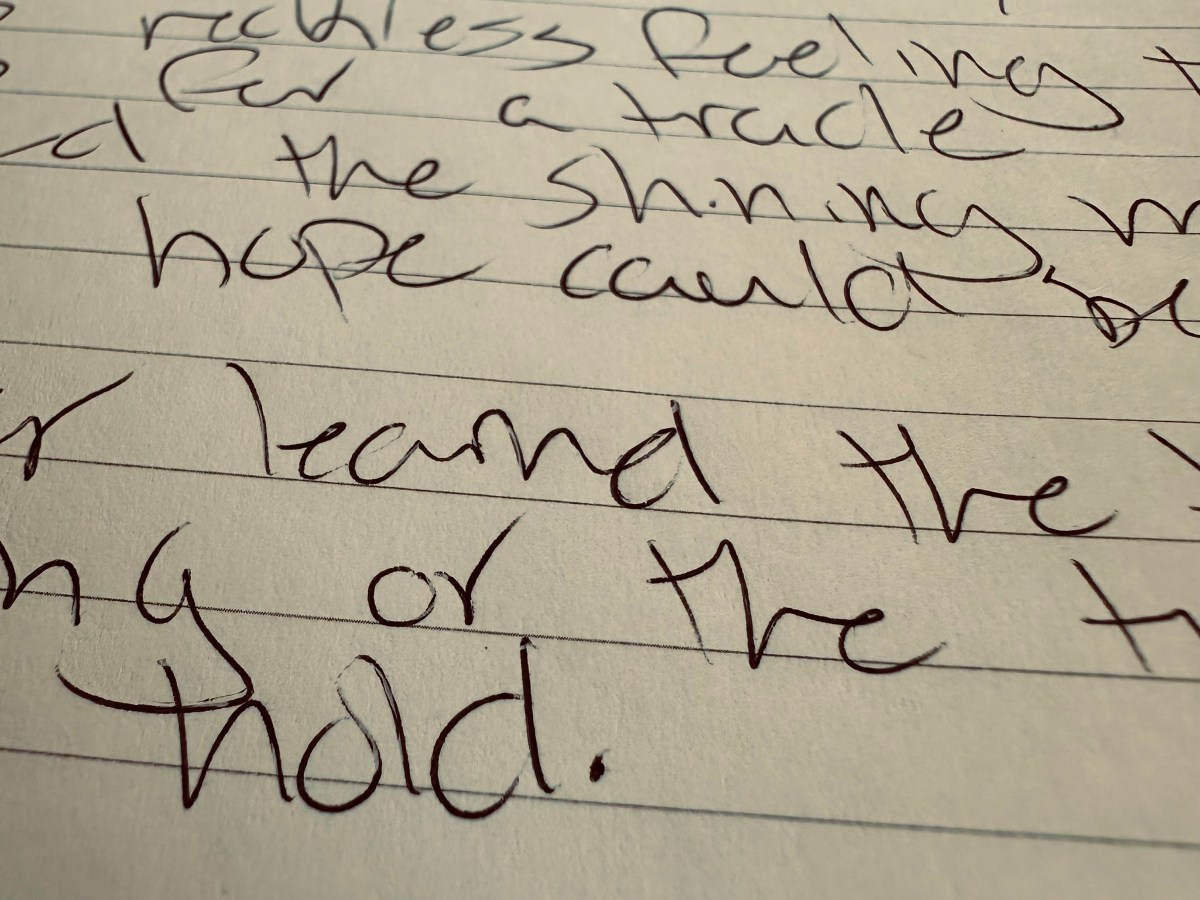 reckless feeling t
for a trade
d the shining m
hope could be
r learned the
ng or the tr
hold.